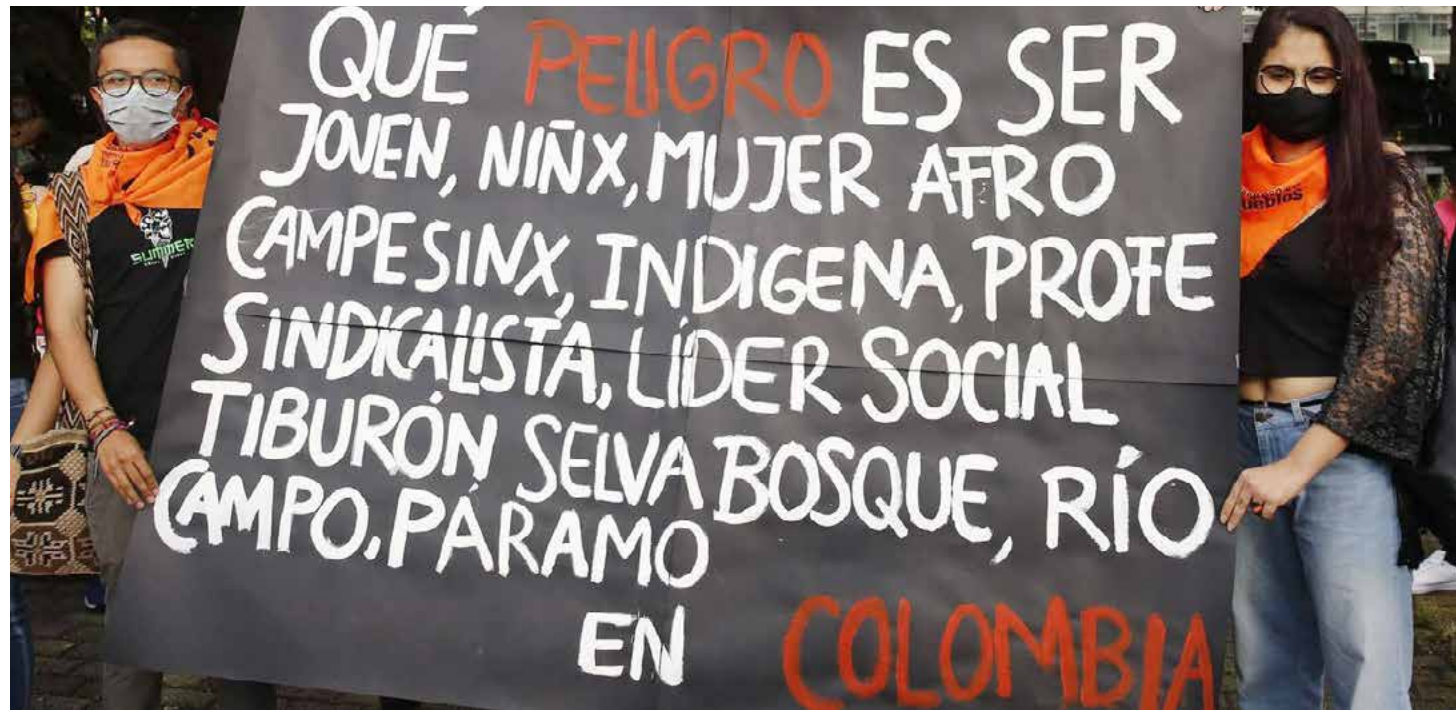 QUÉ PELIGRO ES SER
JOVEN, NIÑX, MUJER AFRO
CAMPESINX, INDIGENA, PROFE
SINDICALISTA, LÍDER SOCIAL
TIBURÓN SELVA BOSQUE, RÍO
CAMPO, PÁRAMO
EN COLOMBIA
Pueblos